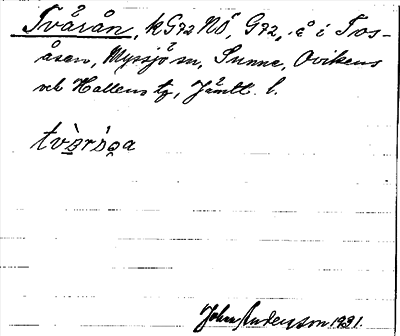 Tvårån, kG72NÖ, G72, å i Tvo-
åsen, Myssjö sn, Sunne, Ovikens
och Hallens tg, Jämtl. l.
tvə̀rsəa
John Anderson 1931.